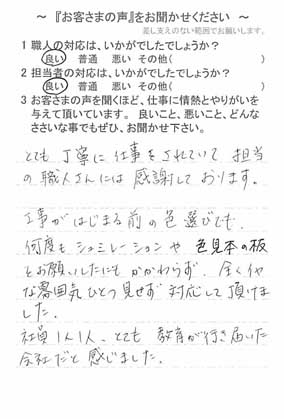 ～ 『お客さまの声』をお聞かせください ～
差し支えのない範囲でお願いします。
1 職人の対応は、いかがでしたでしょうか？
良い 普通 悪い その他( )
2 担当者の対応は、いかがでしたでしょうか？
良い 普通 悪い その他( )
3 お客さまの声を聞くほど、仕事に情熱とやりがいを
与えて頂いています。 良いこと、悪いこと、どんな
ささいな事でもぜひ、お聞かせ下さい。
とても丁寧に仕事をされていて 担当
の職人さんには 感謝しております。
工事がはじまる前の色選びでも、
何度も シュミレーションや 色見本の板
をお願いしたにもかかわらず、全くイヤ
な雰囲気ひとつ見せず 対応して頂けま
した。
社員1人1人、とても 教育が行き届いた
会社だと感じました。